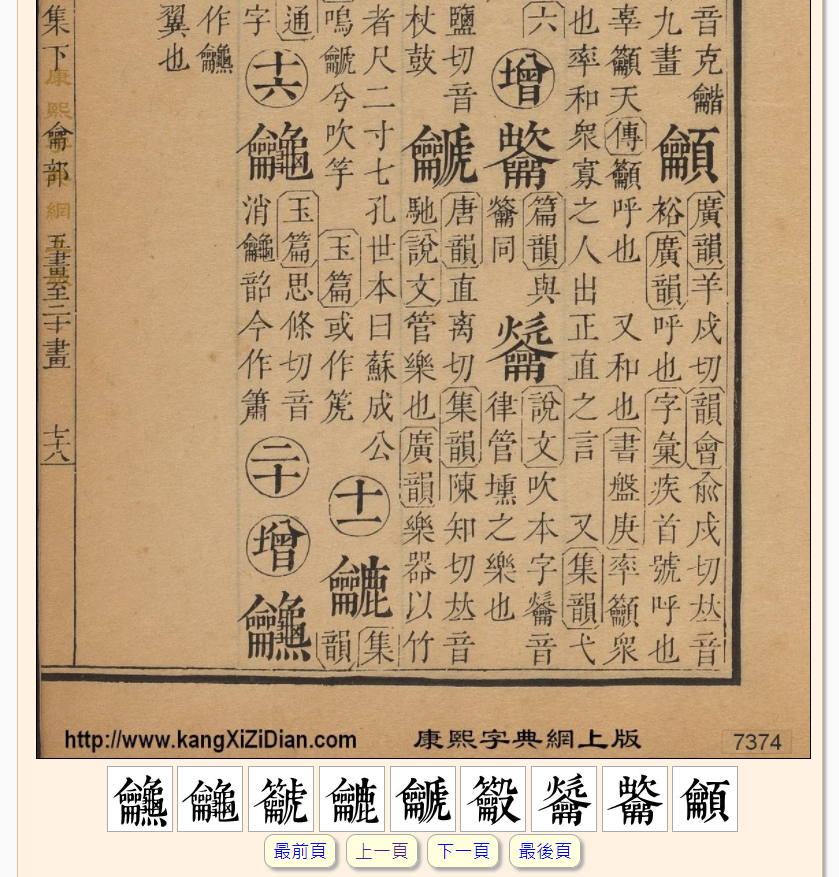 音克龤
九畫
龥
廣韻羊戍切韻會俞戍切𠀤音
裕廣韻呼也字彙疾首號呼也
辜籲天傳籲呼也 又和也書盤庚率籲衆
也率和衆寡之人出正直之言 又集韻弋
六
增
篇韻與
同
龡
說文吹本字龡音
律管壎之樂也
鹽切音
杖鼓
䶵
唐韻直离切集韻陳知切𠀤音
馳說文管樂也廣韻樂器以竹
者尺二寸七孔世本曰蘇成公
鳴䶵兮吹竽 玉篇或作箎
十一
集
韻
通
字
十六
玉篇思條切音
消 韶今作簫
二十
增
作
翼也
集下
龠部
五畫至二十畫
七十八
康熙 網
http://www.kangXiZiDian.com 康熙字典網上版 7374
䶵 龡 龥
最前頁 上一頁 下一頁 最後頁